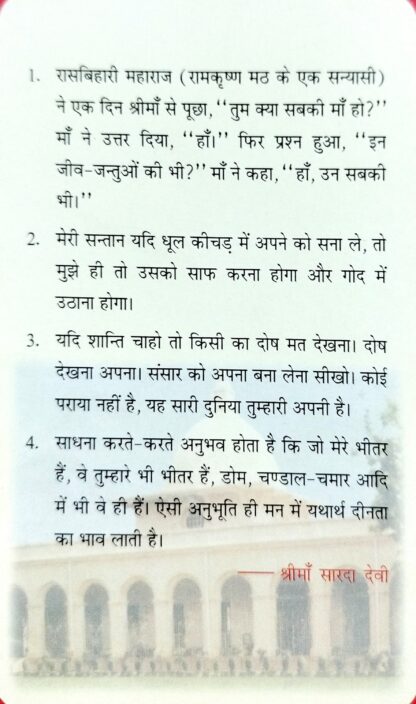 1. रासबिहारी महाराज (रामकृष्ण मठ के एक सन्यासी)
ने एक दिन श्रीमाँ से पूछा, ‘‘तुम क्या सबकी माँ हो?’’
माँ ने उत्तर दिया, ‘‘हाँ।’’ फिर प्रश्न हुआ, ‘‘इन
जीव-जन्तुओं की भी?’’ माँ ने कहा, ‘‘हाँ, उन सबकी
भी।’’
2. मेरी सन्तान यदि धूल कीचड़ में अपने को सना ले, तो
मुझे ही तो उसको साफ करना होगा और गोद में
उठाना होगा।
3. यदि शान्ति चाहो तो किसी का दोष मत देखना। दोष
देखना अपना। संसार को अपना बना लेना सीखो। कोई
पराया नहीं है, यह सारी दुनिया तुम्हारी अपनी है।
4. साधना करते-करते अनुभव होता है कि जो मेरे भीतर
हैं, वे तुम्हारे भी भीतर हैं, डोम, चण्डाल-चमार आदि
में भी वे ही हैं। ऐसी अनुभूति ही मन में यथार्थ दीनता
का भाव लाती है।
— श्रीमाँ सारदा देवी